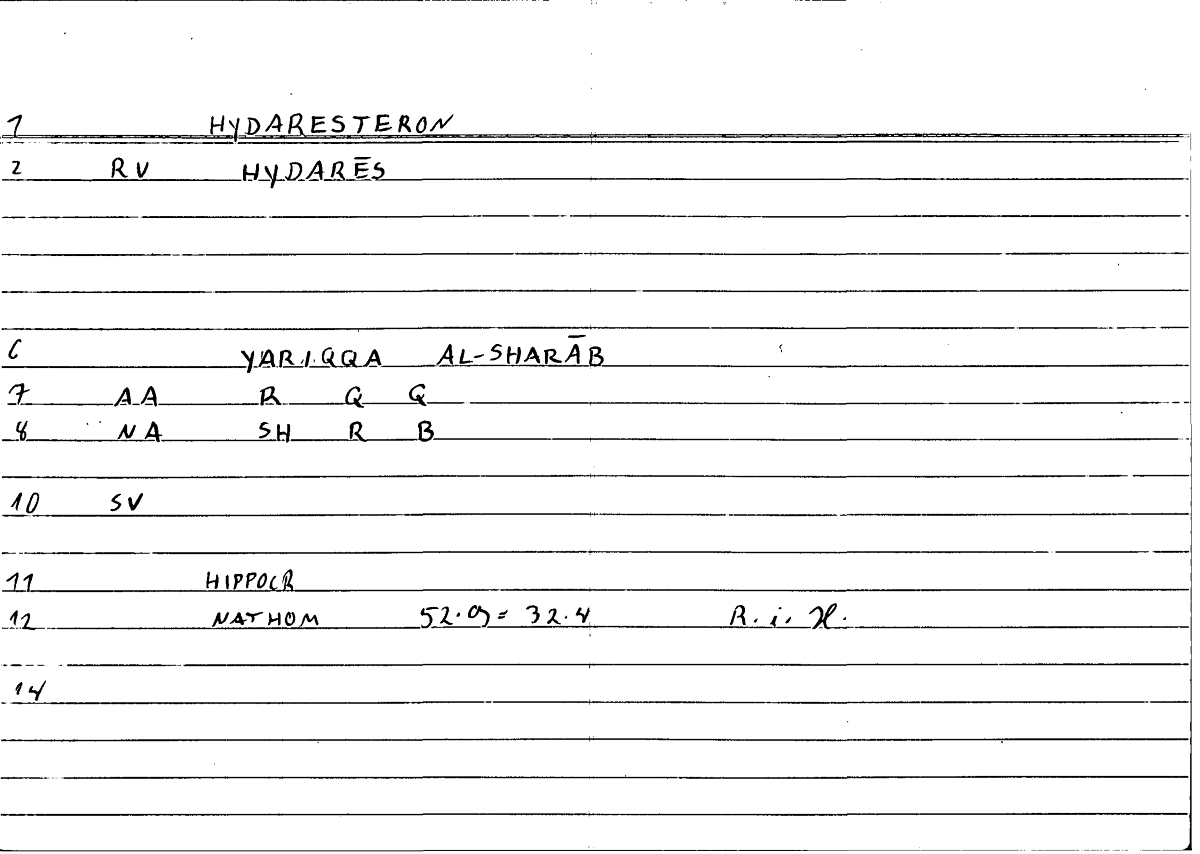 1 HYDARESTERON
2 RV HYDARĒS
6 YARIQQA AL-SHARĀB
7 AA R Q Q
8 NA SH R B
10 SV
11 HIPPOCR
12 NATHOM 52.9 = 32.4 R. i. H.
14